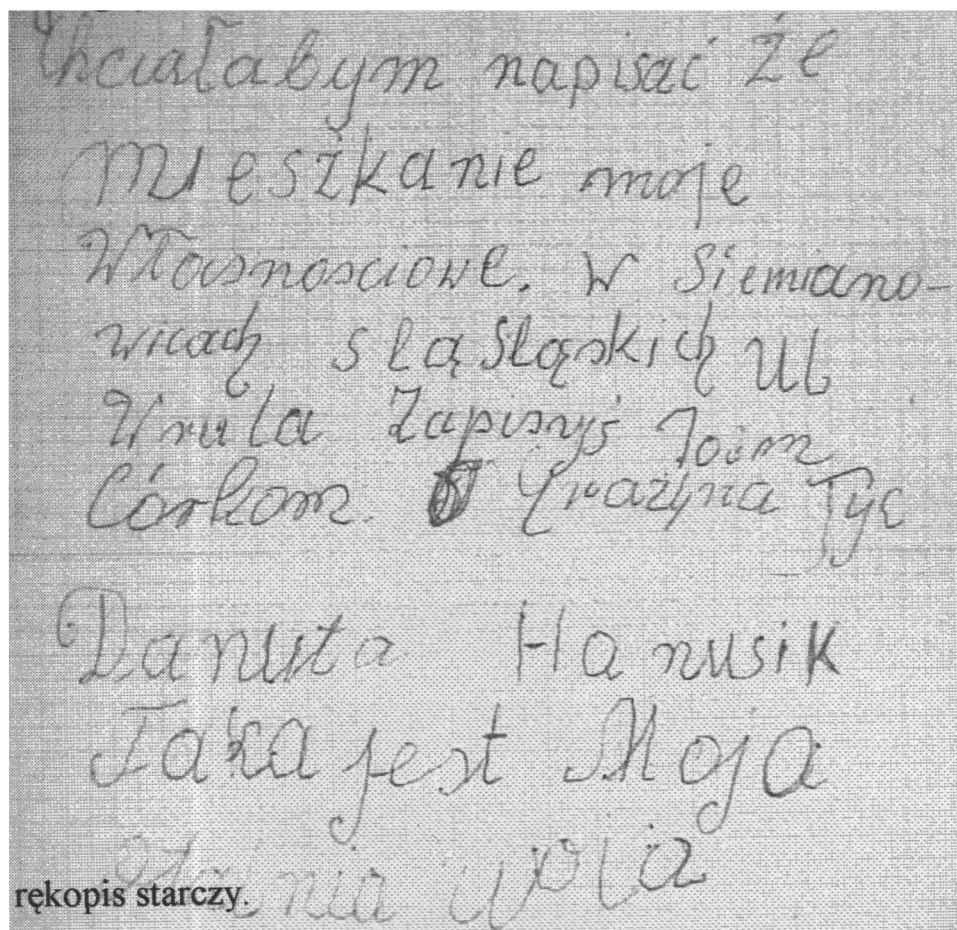 Chciałabym napisać że
mieszkanie moje
Własnosciowe. w Siemiano-
wicach słąsląskich Ul
Zapisyś
Córkom. Grażyna Tyc
Danuta Hanusik
Taka jest Moja
wola
rękopis starczy.